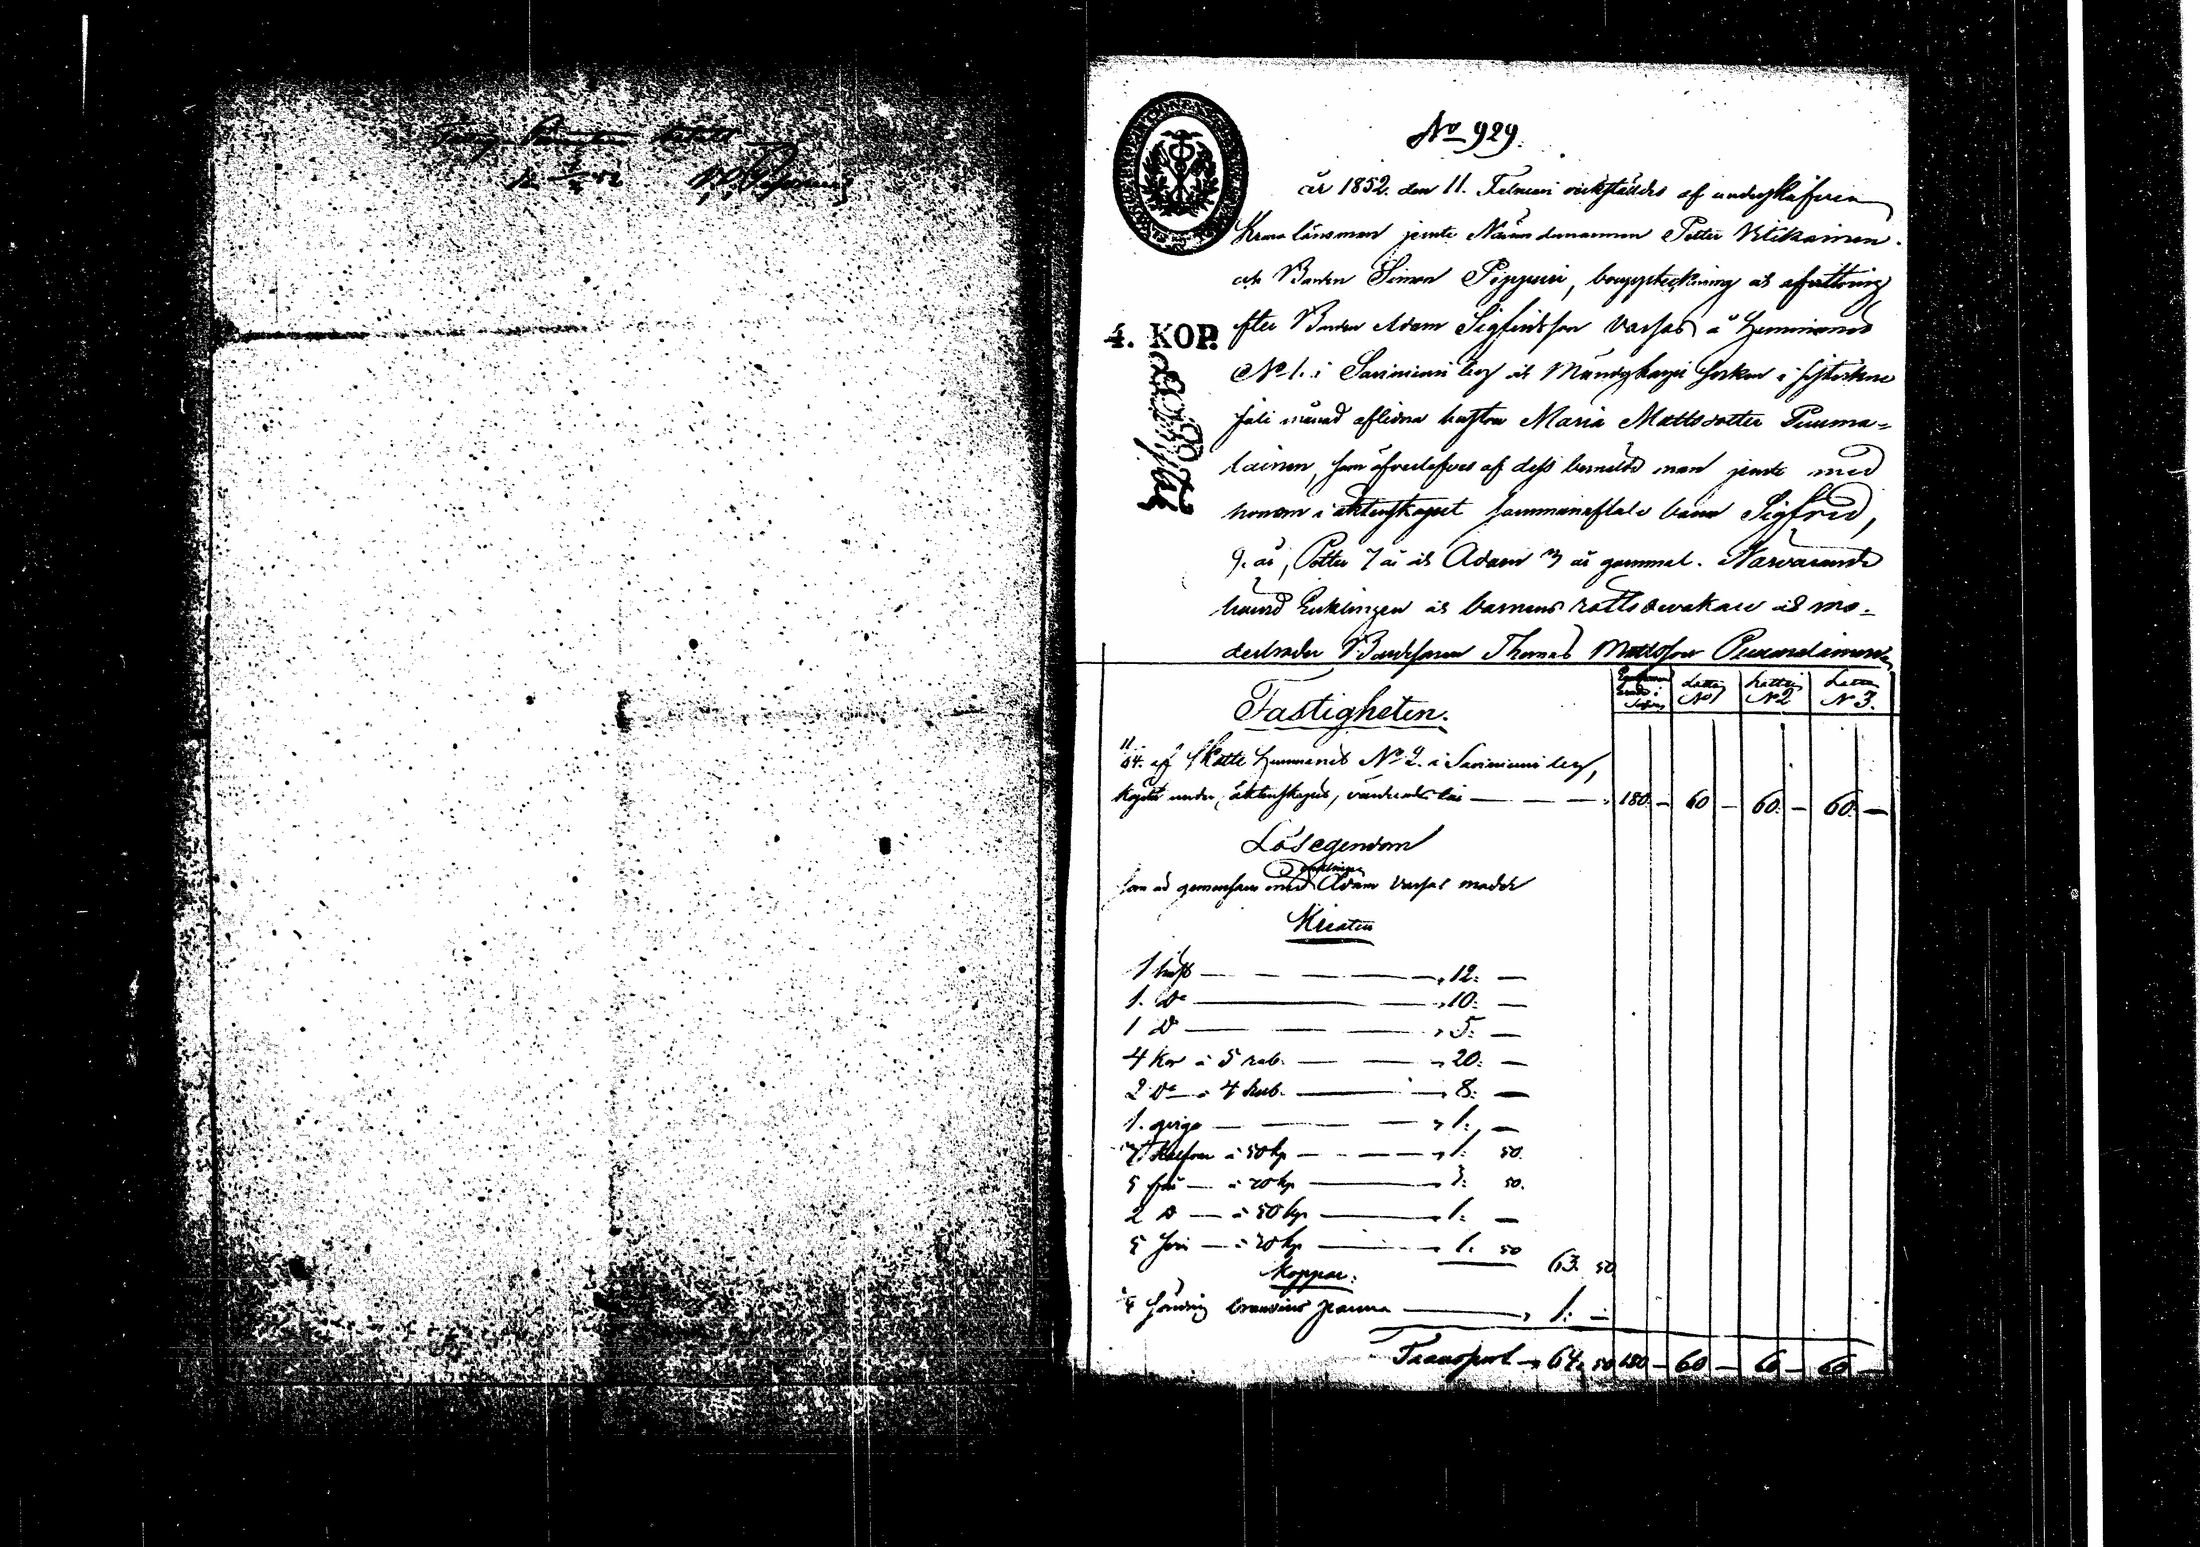 No 929.
år 1852. den 11. Februari verkställdes af underskrifven
Krono länsman jemte Nämndemannen Petter Vitikainen
och Bonden Simon Pippuri, bouppteckning och afvittring
efter Bonden Adam Sigfridsson Varsas å Hemmanet
4. KOP.
No 1. i Saviniemi by och Mändyharju Socken i sistledne
Juli månad aflidna hustru Maria Mattsdotter Puuma-
lainen, som öfverlefves af dess bemälde man jemte med
honom i äktenskapet sammanaflade barn Sigfred,
9. år, Petter 7 år och Adam 3 år gammal. Närvarande
voro Enklingen och barnens rätts bevakare och mo-
derbroder Bondesonen Thomas Mattsson Puumalainen
Lotten No 1 Lotten No 2 Lotten No 3.
Fastigheten.
11/64. af Skatte Hemmanet No 2. i Savinieimi by,
köpt under äktenskapet, värderades till — — — 180. — 60 — 60. — 60. —
Lösegendom
enklingen
som är gemensam med Adam Varsas moder
Kreatur
1 häst — — — — 12. —
1. do — — 10. —
1 do — — — 5. —
4 Kor à 5 rub. — — 20. —
2 do à 4 Rub. — 8. —
1. qviga — — — 1. —
3 Kalfvar à 50 kp — — 1. 50.
5 får — à 70 kp — 3. 50.
2 do — à 50 kp — 1. —
5 — à 30 kp — 1. 50 63. 50
Koppar:
brännvins panna — 1. —
Transport — 64. 50 180 — 60 — 60 — 60 —